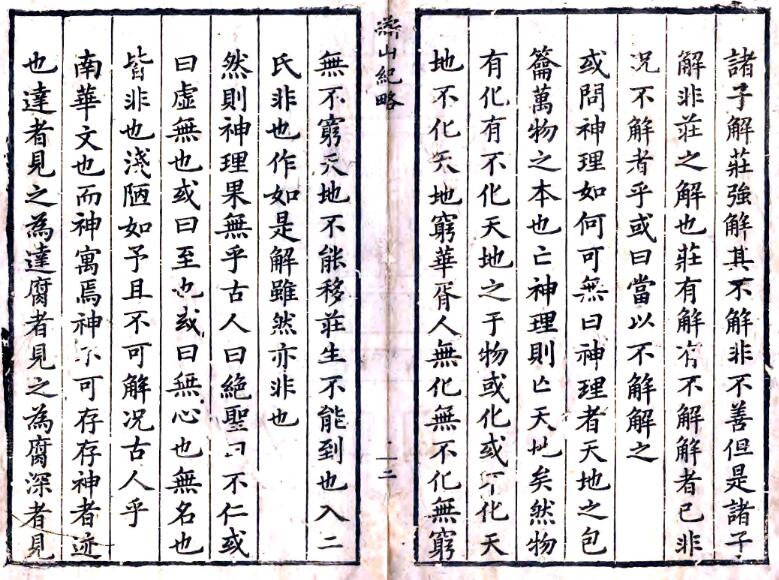 諸子解莊強解其不解非不善但是諸子
解非莊之解也莊有解有不解解者已非
况不解者乎或曰當以不解解之
或問神理如何可無曰神理者天地之包
籥萬物之本也亡神理則亡天地矣然物
有化有不化天地之于物或化或不化天
地不化天地窮華胥人無化無不化無窮
𣻌山紀略
二
無不窮天地不能移莊生不能到也入二
氏非也作如是解雖然亦非也
然則神理果無乎古人曰絕聖曰不仁或
曰虛無也或曰至也或曰無心也無名也
皆非也淺陋如予且不可解况古人乎
南華文也而神寓焉神不可存存神者迹
也達者見之為達腐者見之為腐深者見